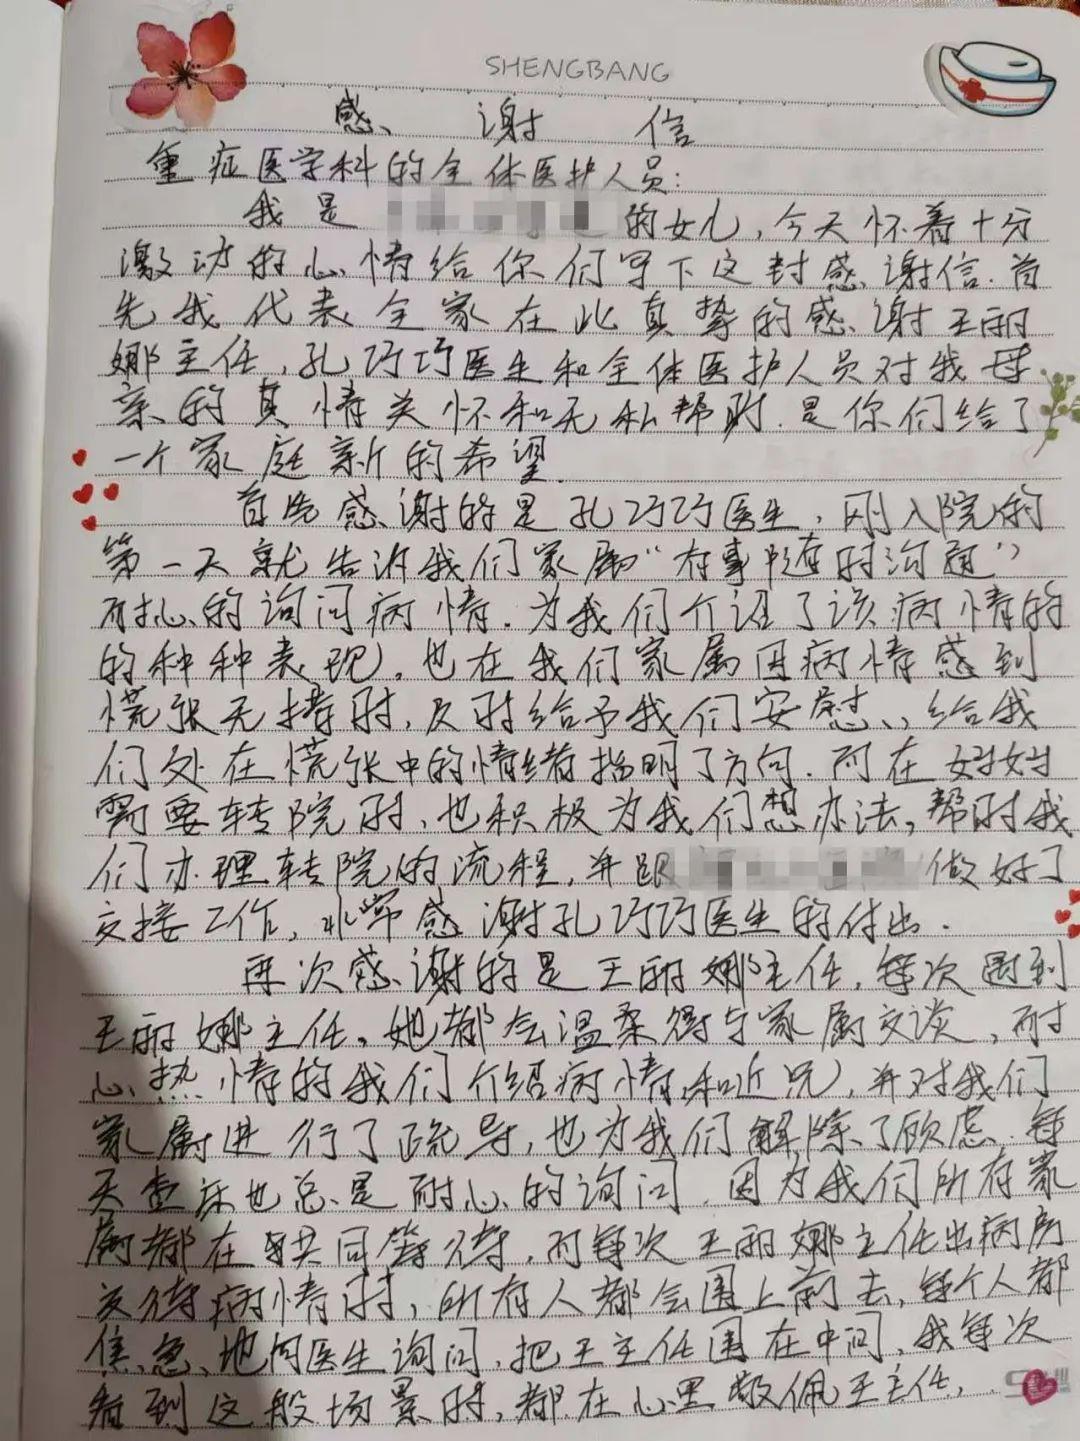 SHENGBANG
感谢信
重症医学科的全体医护人员:
我是 的女儿,今天怀着十分
激动的心情给你们写下这封感谢信.首
先我代表全家在此真挚的感谢王丽
娜主任,孔巧巧医生和全体医护人员对我母
亲的真情关怀和无私帮助.是你们给了
一个家庭新的希望.
首先感谢的是孔巧巧医生,刚入院的
第一天就告诉我们家属“有事随时沟通”
耐心的询问病情.为我们介绍了该病情的
的种种表现,也在我们家属因病情感到
慌张无措时,及时给予我们安慰、给我
们处在慌张中的情绪指明了方向.而在妈妈
需要转院时,也积极为我们想办法,帮助我
们办理转院的流程,并跟 做好了
交接工作,非常感谢孔巧巧医生的付出.
再次感谢的是王丽娜主任,每次遇到
王丽娜主任,她都会温柔得与家属交谈,耐
心热情的我们介绍病情和近况,并对我们
家属进行了疏导,也为我们解除了顾虑.每
天查床也总是耐心的询问,因为我们所有家
属都在共同等待,而每次王丽娜主任出病房
交待病情时,所有人都会围上前去,每个人都
焦急地向医生询问,把王主任围在中间,我每次
看到这般场景时,都在心里敬佩王主任,